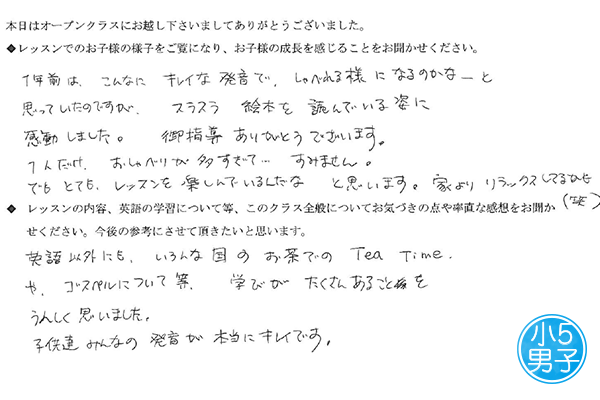 本日はオープンクラスにお越し下さいましてありがとうございました。
◆レッスンでのお子様の様子をご覧になり、お子様の成長を感じることをお聞かせください。
1年前は、こんなに キレイな 発音で、しゃべれる様に なるのかなーと
思っていたのですが、スラスラ 絵本を 読んでいる 姿に
感動しました。 御指導 ありがとうございます。
1人だけ、おしゃべりが 多すぎて… すみません。
でも とても、レッスンを 楽しんでいるんだな と思います。家より リラックスしてるかも
◆ レッスンの内容、英語の学習について等、このクラス全般についてお気づきの点や率直な感想をお聞か
せください。今後の参考にさせて頂きたいと思います。
英語以外にも、いろんな 国の お茶での Tea Time.
や、ゴスペルについて 等、 学びが たくさんあること を
うれしく 思いました。
子供達 みんなの 発音が 本当に キレイです。
小5
男子